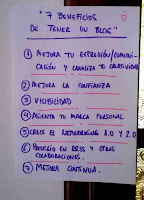 "7 BENEFICIOS
DE TENER UN BLOG"
1 MEJORA TU EXPRESIÓN/COMUNI-
CACIÓN Y CANALIZA TU CREATIVIDAD
2 MEJORA LA CONFIANZA
3 VISIBILIDAD
4 ASIENTA TU MARCA PERSONAL
5 CRECE EL NETWORKING 1.0 Y 2.0
6 EN RRSS Y OTRAS
COLABORACIONES.
7 MEJORA CONTINUA.